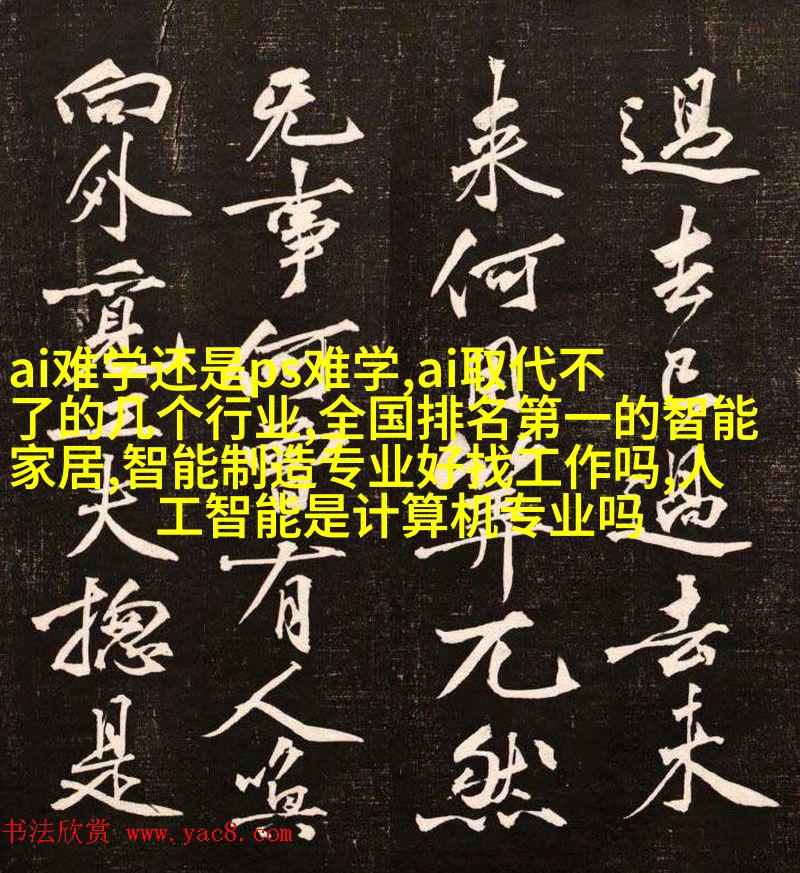 過去已過去未
来何兀然
无事何曾有人喚
向外覓工夫揔是
ai难学还是ps难学,ai取代不
了的几个行业,全国排名第一的智能
家居,智能制造专业好找工作吗,人
工智能是计算机专业吗
书法欣赏 www.yac8.com